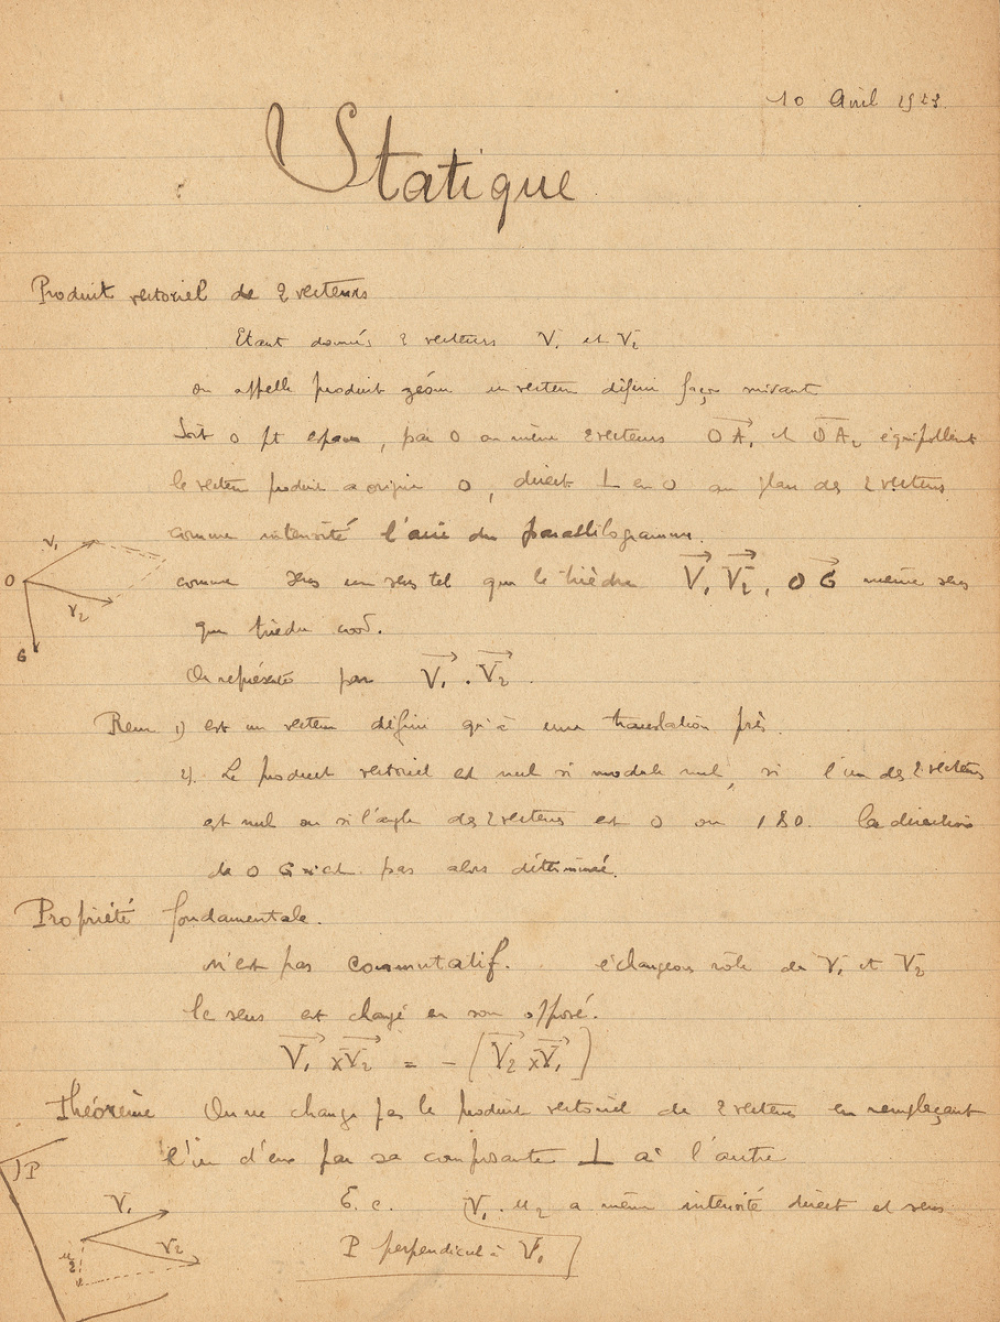 10 Avril 1923.
Statique
Produit vectoriel de 2 vecteurs
Etant donnés 2 vecteurs V₁ et V₂
on appelle produit géom un vecteur défini façon suivant
Soit O pt espace, par O on mène 2 vecteurs OA₁ et OA₂ équipollents
le vecteur produit a origine O, direct ⊥ en O au plan des 2 vecteurs
comme intensité l'aire du parallilogramme.
comme sens un sens tel que le trièdre V₁ V₂, OG même sens
que trièdre cood.
On représente par V₁ . V₂ .
Rem 1) est un vecteur défini qu'à une translation près.
2). Le produit vectoriel est nul si module nul, si l'un des 2 vecteurs
est nul ou si l'angle des 2 vecteurs est 0 ou 180. la direction
de OG n'est pas alors déterminée.
V₁
O
V₂
G
Propriété fondamentale.
n'est pas commutatif. échangeons rôle de V₁ et V₂
le sens est changé en son opposé.
V₁ x V₂ = - [V₂ x V₁]
Théorème On ne change pas le produit vectoriel de 2 vecteurs en remplaçant
l'un d'eux par sa composante ⊥ à l'autre
P
V₁
V₂
u₂
V₁ . u₂ a même intensité direct et sens
P perpendicul à V₁